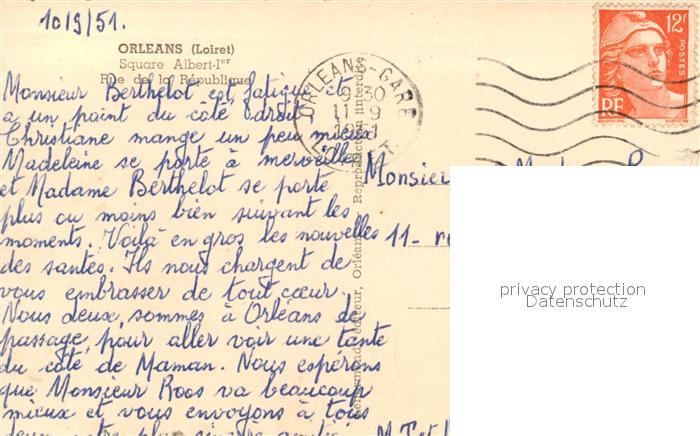 10/9/51.
ORLEANS (Loiret)
Square Albert-Ier
Rue de la République
Monsieur Berthelot est fatigué et
a un point du côté droit
Christiane mange un peu mieux
Madeleine se porte à merveille
et Madame Berthelot se porte
plus ou moins bien suivant les
moments. Voilà en gros les nouvelles
des santés. Ils nous chargent de
vous embrasser de tout cœur.
Nous deux, sommes à Orléans de
passage, pour aller voir une tante
du côté de Maman. Nous espérons
que Monsieur Roos va beaucoup
mieux et vous envoyons à tous
deux notre plus sincère
ORLEANS-GARE
9 30
11-9
12F
POSTES
RF
éditeur, Orléans. Reproduction interdite
Monsie
11-
privacy protection
Datenschutz